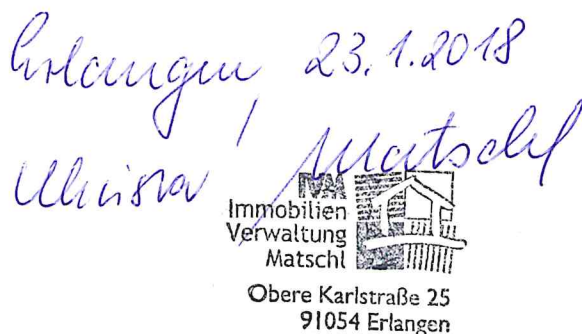 Erlangen, 23.1.2018
Matschl
IVM
Immobilien
Verwaltung
Matschl
Obere Karlstraße 25
91054 Erlangen